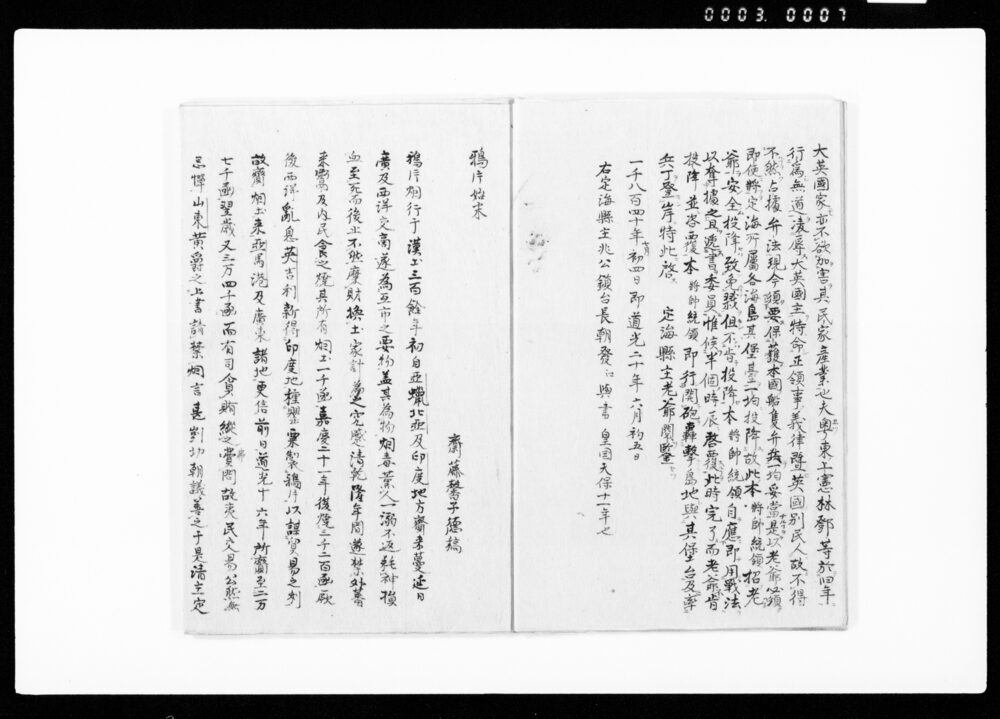 0003 0007
大英國家亦不欲加害其民家産業也夫粤東上憲林鄧等於旧年
行為無道凌辱大英國主特命正領事義律曁英國別民人故不得
不然占據弁法現今須要保護本國船隻弁兵一均妥當是以老爺必須
即使轉定海所属各海島其堡臺一均投降故此本将帥統領招老
爺安全投降致免戮但不肯投降本将帥統領自應即用戰法
以奪據之且遞書委員惟候半個時辰啓覆此時完了而老爺肯
投降並咨西覆本将帥統領即行開砲轟擊島地與其堡台及率
兵丁登岸特此啓 定海縣主老爺閲鑒
一千八百四十年七月初四日即道光二十年六月初五日
右定海縣主兆公鎖台長朝發ニ與書 皇国天保十一年也
鴉片始末
齋藤馨子德稿
鴉片烟行于漢土三百餘年初自亞蠟北亞及印度地方齎来蔓延日
廣及西洋交商遂為互市之要約蓋其為物烟毒薫人一溺不返耗神損
血至死而後止不啻糜財換土家計蕩之完盛清乾隆年間遂禁外蕃
来鬻及内民食之燒其所有烟土一千函嘉慶二十一年復燒三千二百函厥
後西洋亂息英吉利新得印度地種罌粟製鴉片以謀貿易之利
故齎烟土来亞馬港及廣東諸地更倍前日道光十六年所齎至二万
七千函翌歳又三万四千函而有司貪賄縱之弗問故夷民交易公然無
忌憚山東黄爵之上書請禁烟言甚剴切朝議善之于是清主定